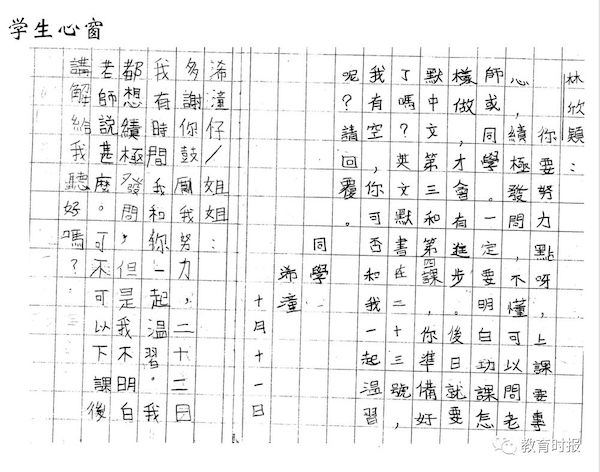 学生心窗
林欣穎：
你要努力點呀，上課要專
心，績極發問，不懂，可以問老
師或同學。一定要明白功課怎
樣做，才會有進步。後日就要
默中文第三和第四課，你準備好
了嗎？英文默書在二十三號，
我有空，你可否和我一起溫習
呢？請回覆。
同學
浠潼
十月十一日
浠潼仔/姐姐：
多謝你鼓勵我努力，二十二日
我有時間我和你一起溫習。我
都想績極發問，但是我不明白
老師説甚麼。可不可以下課後
講解給我聽好嗎？
教育时报